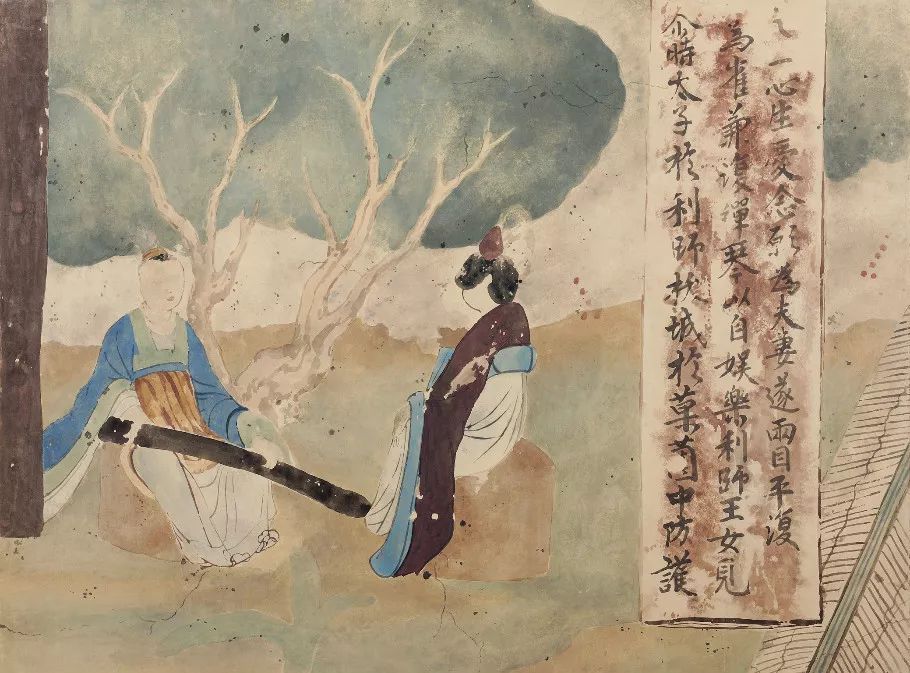 尒時太子於利師跋城於菓園中防護
鳥雀兼復彈琴以自娛樂利師王女見
之一心生愛念願為夫妻遂兩目平復